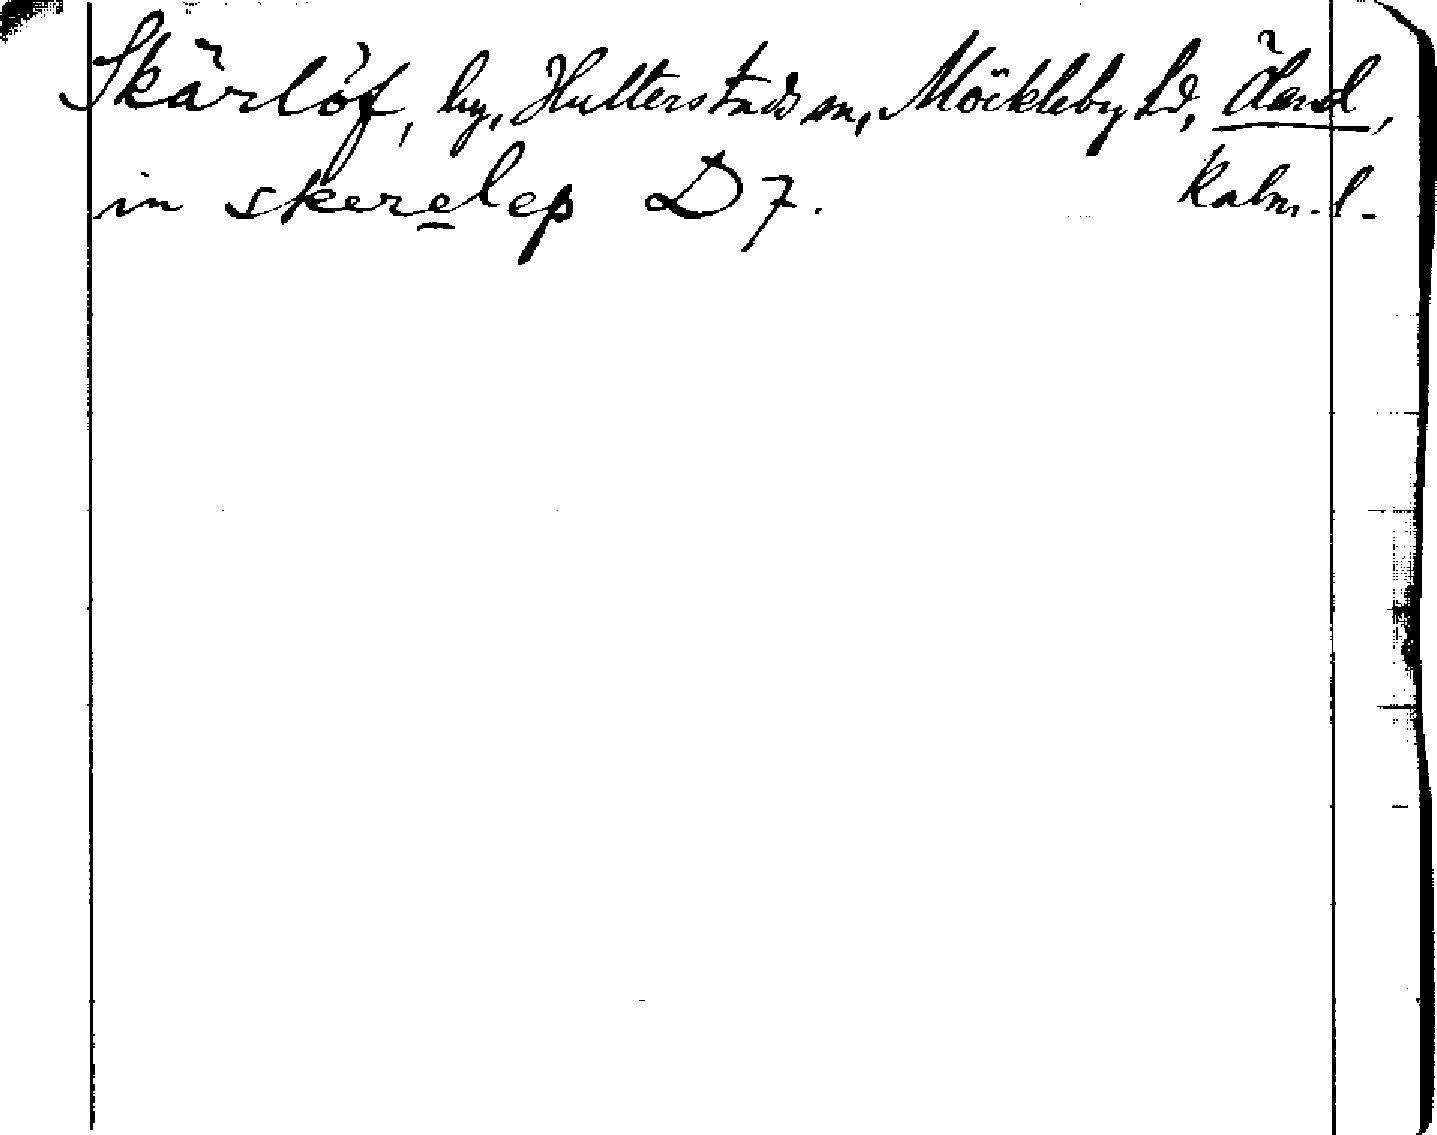 Skärlöf, by, Hulterstads sn, Möckleby hd, Öland,
in skerelep D 7. Kalm. l.